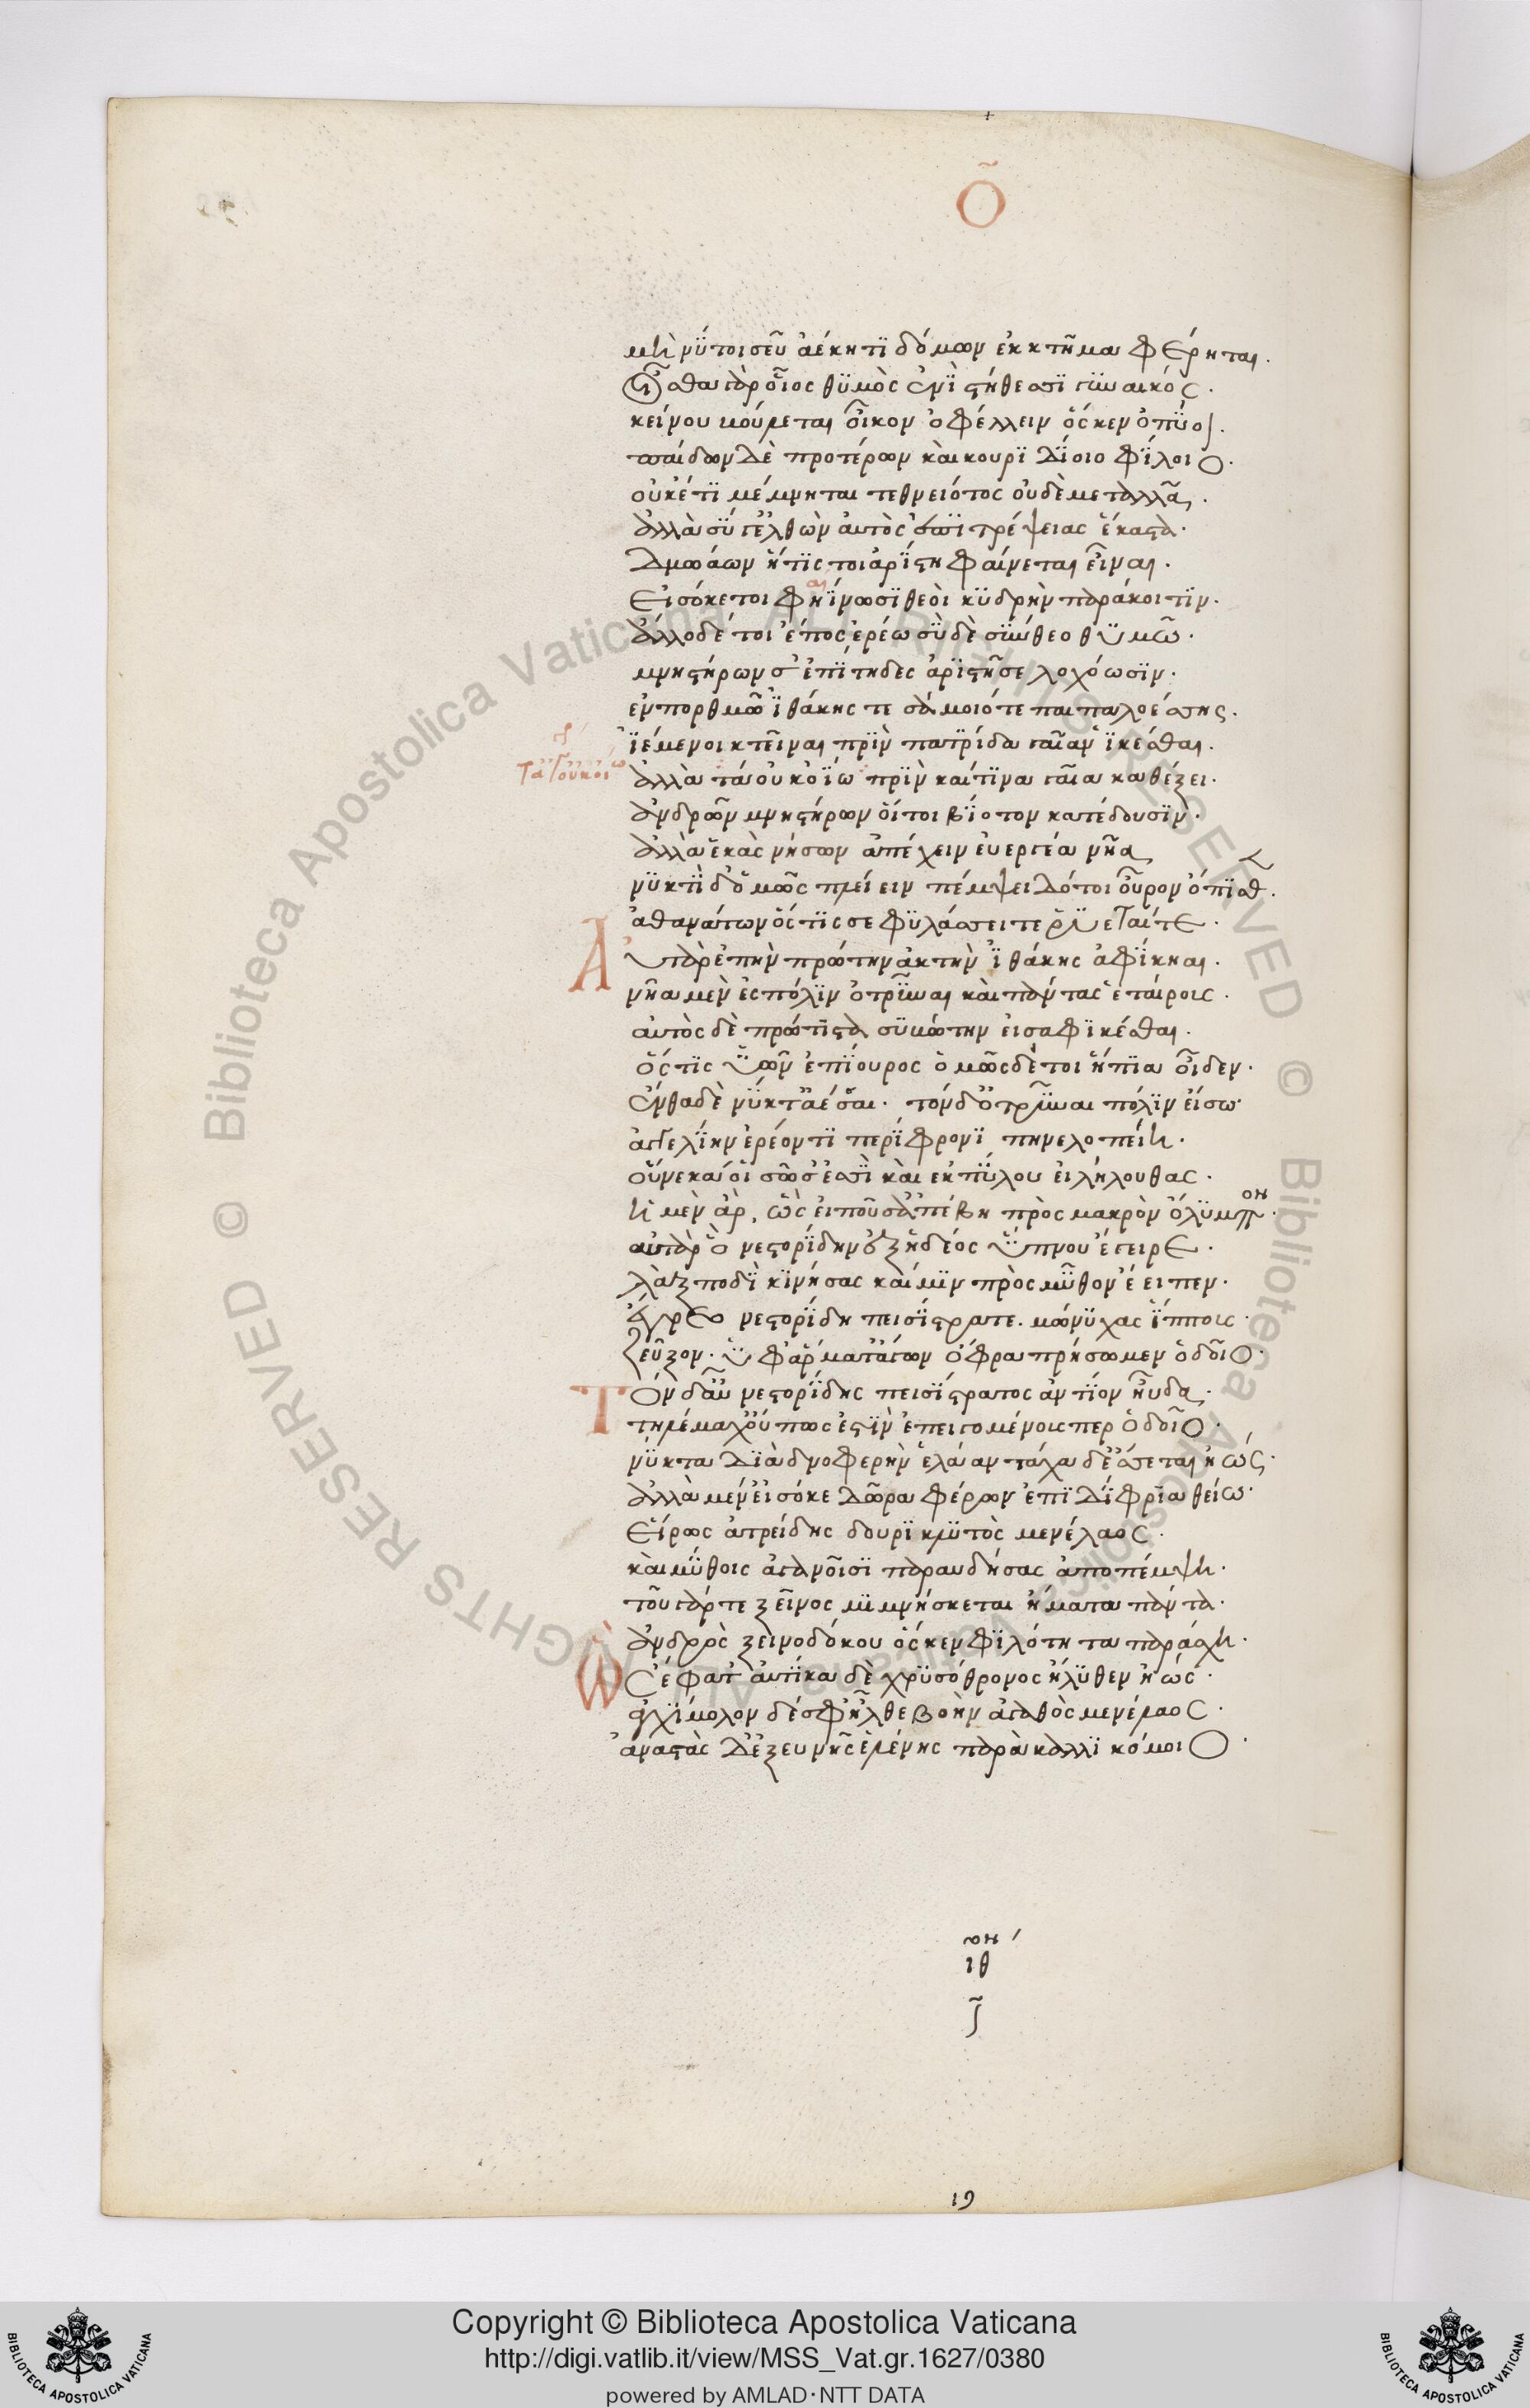 Ο̃
μὴ νύ τοι σεῦ ἀέκητι δόμων ἐκ κτῆμα φέρηται.
οἶσθα γὰρ οἷος θυμὸς ἐνὶ στήθεσσι γυναικός.
κείνου βούλεται οἶκον ὀφέλλειν ὅς κεν ὀπύοι.
παίδων δὲ προτέρων καὶ κουριδίοιο φίλοιο.
οὐκέτι μέμνηται τεθνειότος οὐδὲ μεταλλᾷ.
ἀλλὰ σύ γ' ἐλθὼν αὐτὸς ἐπιτρέψειας ἕκαστα.
δμωάων ἥτις τοι ἀρίστη φαίνεται εἶναι.
εἰσόκε τοι φηίνωσι θεοὶ κυδρὴν παράκοιτιν.
ἄλλο δέ τοι ἔπος ἐρέω σὺ δὲ σύνθεο θυμῶ.
μνηστήρων σ' ἐπίτηδες ἀριστῆσε λοχόωσιν.
ἐν πορθμῶ ἰθάκης τε σάμοιό τε παιπαλοέσσης.
ἱέμενοι κτεῖναι πρὶν πατρίδα γαῖαν ἱκέσθαι.
τά γ' οὐκ οἴω
ἀλλὰ τά οὐκ ὀίω πρὶν καί τινα γαῖα καθέξει.
ἀνδρῶν μνηστήρων οἵ τοι βίοτον κατέδουσιν.
ἀλλὰ ἑκὰς νήσων ἀπέχειν εὐεργέα νῆα
νυκτὶ δ' ὁμῶς πλείειν πέμψει δέ τοι οὖρον ὄπισθ.
ἀθανάτων ὅς τίς σε φυλάσσει τε ῥύεταί τε.
Αὐτὰρ ἐπὴν πρώτην ἀκτὴν ἰθάκης ἀφίκηαι.
νῆα μὲν ἐς πόλιν ὀτρῦναι καὶ πάντας ἑταίρους.
αὐτὸς δὲ πρώτιστα συβώτην εἰσαφικέσθαι.
ὅς τις ὑῶν ἐπίουρος ὁμῶς δέ τοι ἤπια οἶδεν.
ἔνθα δὲ νύκτ' ἀέσαι. τόν δ' ὀτρῦναι πόλιν εἴσω.
ἀγγελίην ἐρέοντι περίφρονι πηνελοπείη.
οὕνεκά οἱ σῶς ἐσσὶ καὶ ἐκ πύλου εἰλήλουθας.
ἡ μὲν ἄρ, ὣς εἰποῦσ' ἀπέβη πρὸς μακρὸν ὄλυμπον.
αὐτὰρ ὁ νεστορίδην ἐξ ἡδέος ὕπνου ἔγειρε.
λὰξ ποδὶ κινήσας καί μιν πρὸς μῦθον ἔειπεν.
ἔγρεο νεστορίδη πεισίστρατε. μώνυχας ἵππους.
ζεῦξον. ὑφ' ἅρματ' ἄγων ὄφρα πρήσσωμεν ὁδοῖο.
Τὸν δ' αὖ νεστορίδης πεισίστρατος ἀντίον ηὔδα.
τηλέμαχ' οὔ πως ἐστὶν ἐπειγομένους περ ὁδοῖο.
νύκτα διὰ δνοφερὴν ἐλάαν τάχα δ' ἔσσεται ἠώς.
ἀλλὰ μέν' εἰσόκε δῶρα φέρων ἐπιδίφρια θείω.
εἵρως ἀτρείδης δουρικλυτὸς μενέλαος.
καὶ μύθοις ἀγανοῖσι παραυδήσας ἀποπέμψη.
τοῦ γάρ τε ξεῖνος μιμνήσκεται ἤματα πάντα.
ἀνδρὸς ξεινοδόκου ὅς κεν φιλότητα παράσχη.
Ὣς ἔφατ' αὐτίκα δὲ χρυσόθρονος ἤλυθεν ἠώς.
ἀγχίμολον δέ σφ' ἦλθε βοὴν ἀγαθὸς μενέλαος.
ἀναστὰς ἐξ εὐνῆς ἑλένης πάρα καλλικόμοιο.
ιθ
19
Copyright © Biblioteca Apostolica Vaticana
http://digi.vatlib.it/view/MSS_Vat.gr.1627/0380
powered by AMLAD·NTT DATA